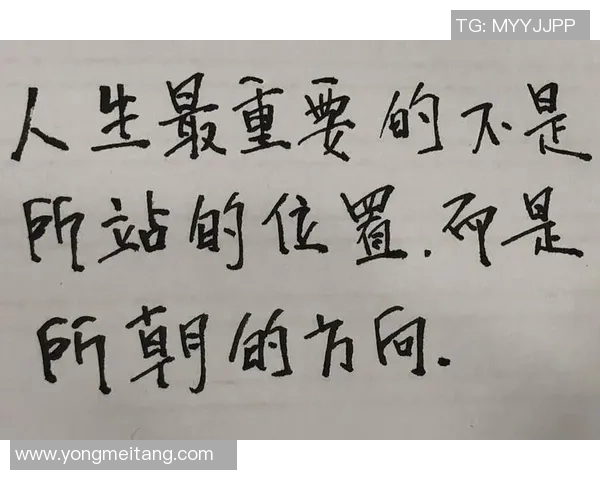 TG: MYYJJPP
人生最重要的不是
所站的位置.而是
所朝的方向.
www.yongmeitang.com